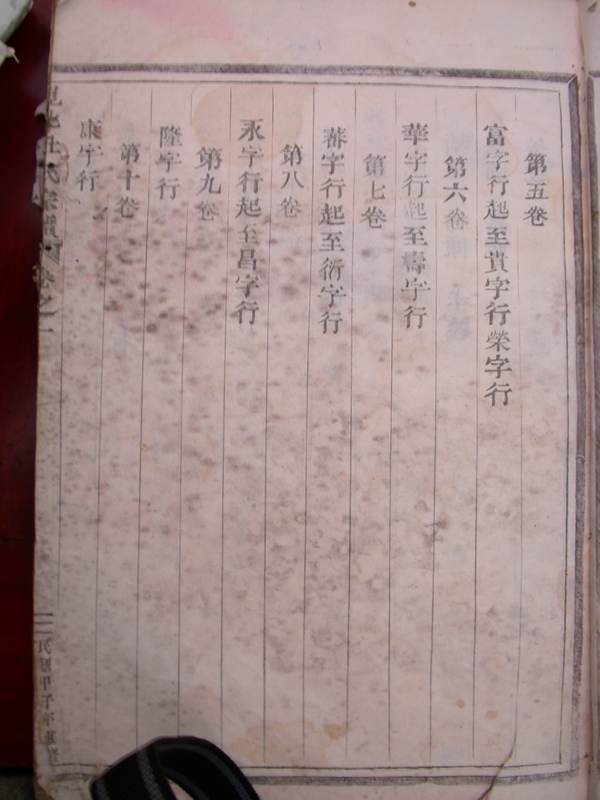 第五卷
富字行起至貴字行榮字行
第六卷
華字行起至壽字行
第七卷
蕃字行起至衍字行
第八卷
永字行起至昌字行
第九卷
隆字行
第十卷
康字行
杜氏宗譜 卷之一
民國甲子年重修